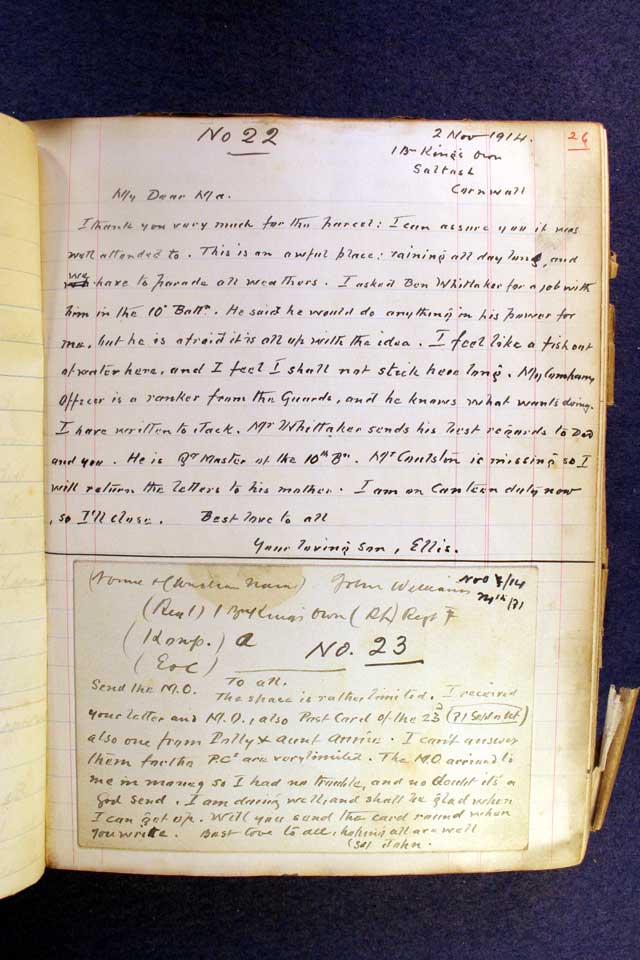 No 22
2 Nov 1914.
26
1 Bn King's Own
Saltash
Cornwall
My Dear Ma.
I thank you very much for the parcel: I can assure you it was
well attended to. This is an awful place: raining all day long, and
we have to parade all weathers. I asked Ben Whittaker for a job with
him in the 10th Battn. He said he would do anything in his power for
me, but he is afraid it is all up with the idea. I feel like a fish out
of water here, and I feel I shall not stick here long. My Company
Officer is a ranker from the Guards, and he knows what wants doing.
I have written to Jack. Mr Whittaker sends his best regards to Dad
and you. He is Qr Master of the 10th Bn. Mr Coulston is missing so I
will return the letters to his mother. I am on Canteen duty now
, so I'll close. Best love to all
Your loving son, Ellis.
(Name & Christian Name) John Williams Nov
(Regt) 1 King's Own (Rl) Regt
(Komp.) a No. 23
(Eoc)
Send the M.O. To all.
The space is rather limited. I received
your letter and M.O., also Post Card of the 23d
also one from Polly & Aunt Annie. I can't answer
them for the P.Cs are very limited. The M.O arrived to
me in money so I had no trouble, and no doubt it's a
God send. I am doing well, and shall be glad when
I can get up. Will you send the card round when
you write. Best love to all, hoping all are well
(Sd) John.